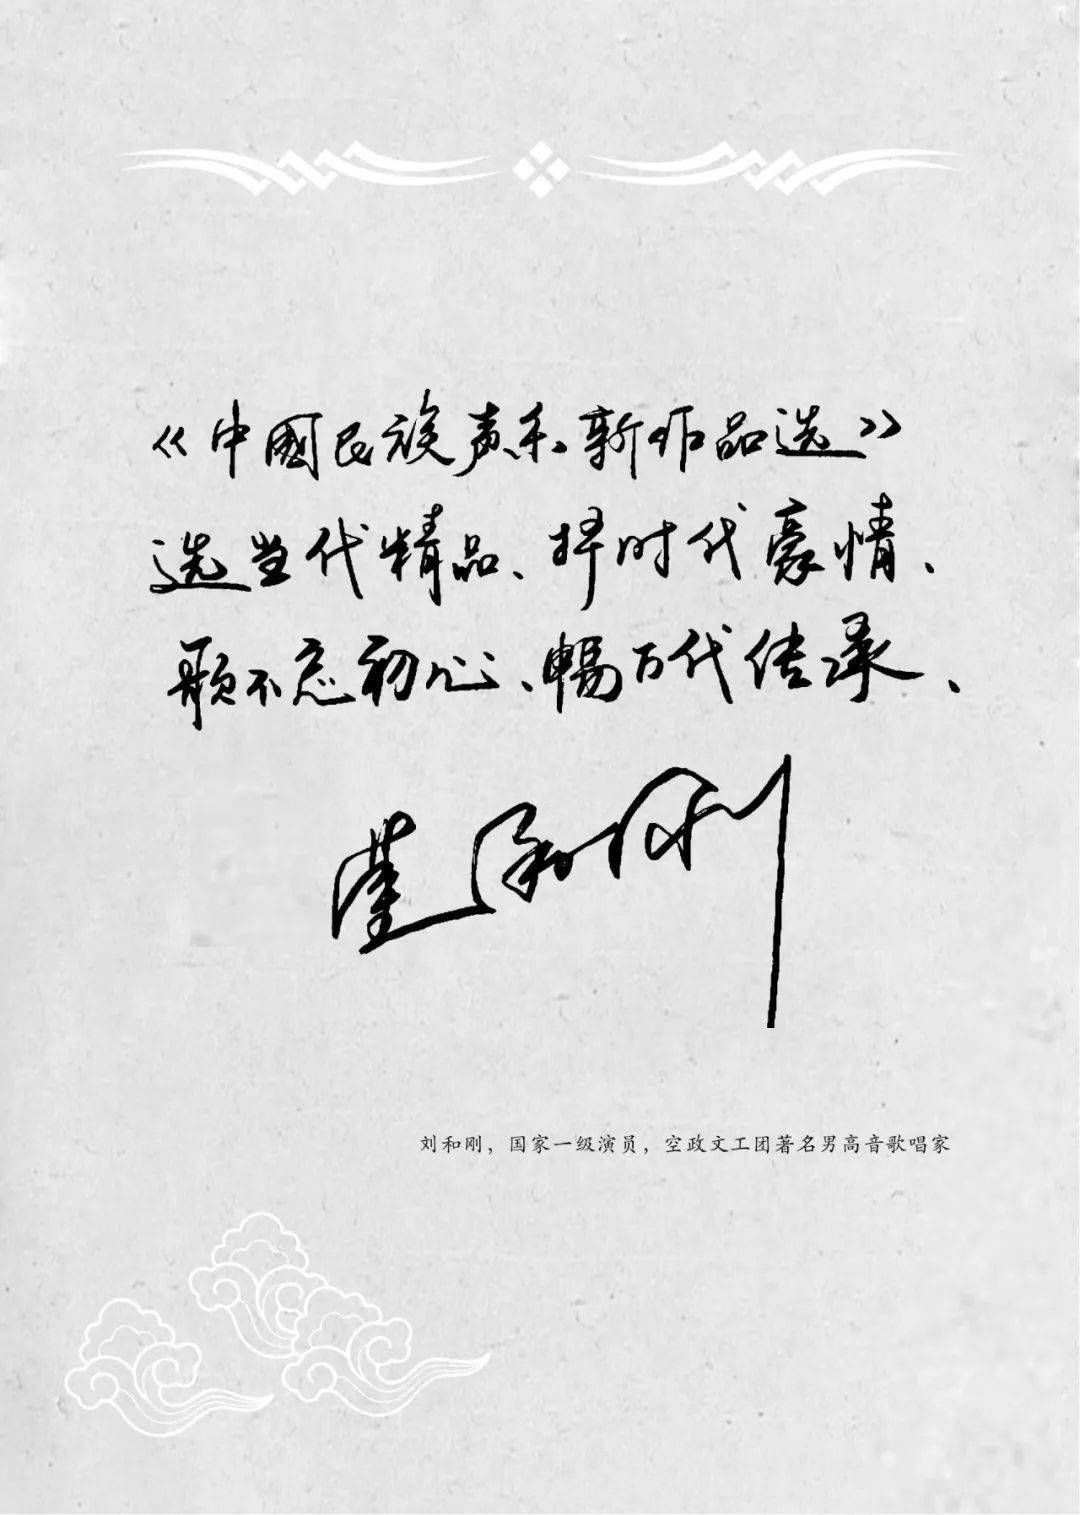 《中國民族声乐新作品选》
选当代精品、择时代豪情、
歌不忘初心、畅百代传承、
刘和刚，国家一级演员，空政文工团著名男高音歌唱家